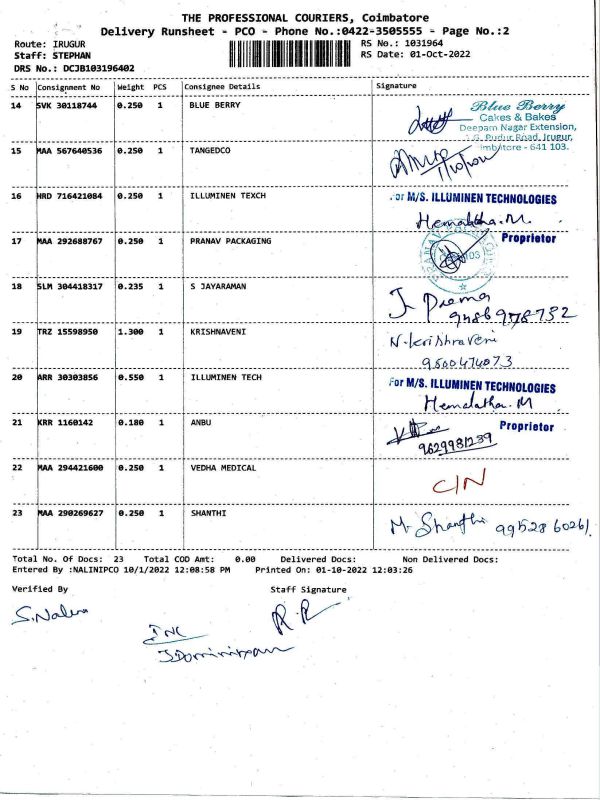 THE PROFESSIONAL COURIERS, Coimbatore
Delivery Runsheet - PCO - Phone No.:0422-3505555 - Page No.:2
Route: IRUGUR
Staff: STEPHAN
DRS No.: DCJB103196402
RS No.: 1031964
RS Date: 01-Oct-2022
S No Consignment No Weight PCS Consignee Details Signature
14 SVK 30118744 0.250 1 BLUE BERRY
Blue Berry
Cakes & Bakes
Deepam Nagar Extension,
Pudur Road, Irugur,
641 103.
15 MAA 567640536 0.250 1 TANGEDCO
16 HRD 716421084 0.250 1 ILLUMINEN TEXCH
For M/S. ILLUMINEN TECHNOLOGIES
Hemalatha.M.
Proprietor
17 MAA 292688767 0.250 1 PRANAV PACKAGING
18 SLM 304418317 0.235 1 S JAYARAMAN
J. Prema
9486978732
19 TRZ 15598950 1.300 1 KRISHNAVENI
N. Krishnaveni
9500474073
20 ARR 30303856 0.550 1 ILLUMINEN TECH
For M/S. ILLUMINEN TECHNOLOGIES
Hemalatha.M
Proprietor
21 KRR 1160142 0.180 1 ANBU
9629981239
22 MAA 294421600 0.250 1 VEDHA MEDICAL
C/N
23 MAA 290269627 0.250 1 SHANTHI
M. Shanthi 9952860261
Total No. Of Docs: 23 Total COD Amt: 0.00 Delivered Docs: Non Delivered Docs:
Entered By :NALINIPCO 10/1/2022 12:08:58 PM Printed On: 01-10-2022 12:03:26
Verified By Staff Signature
S.Nalini
R.R